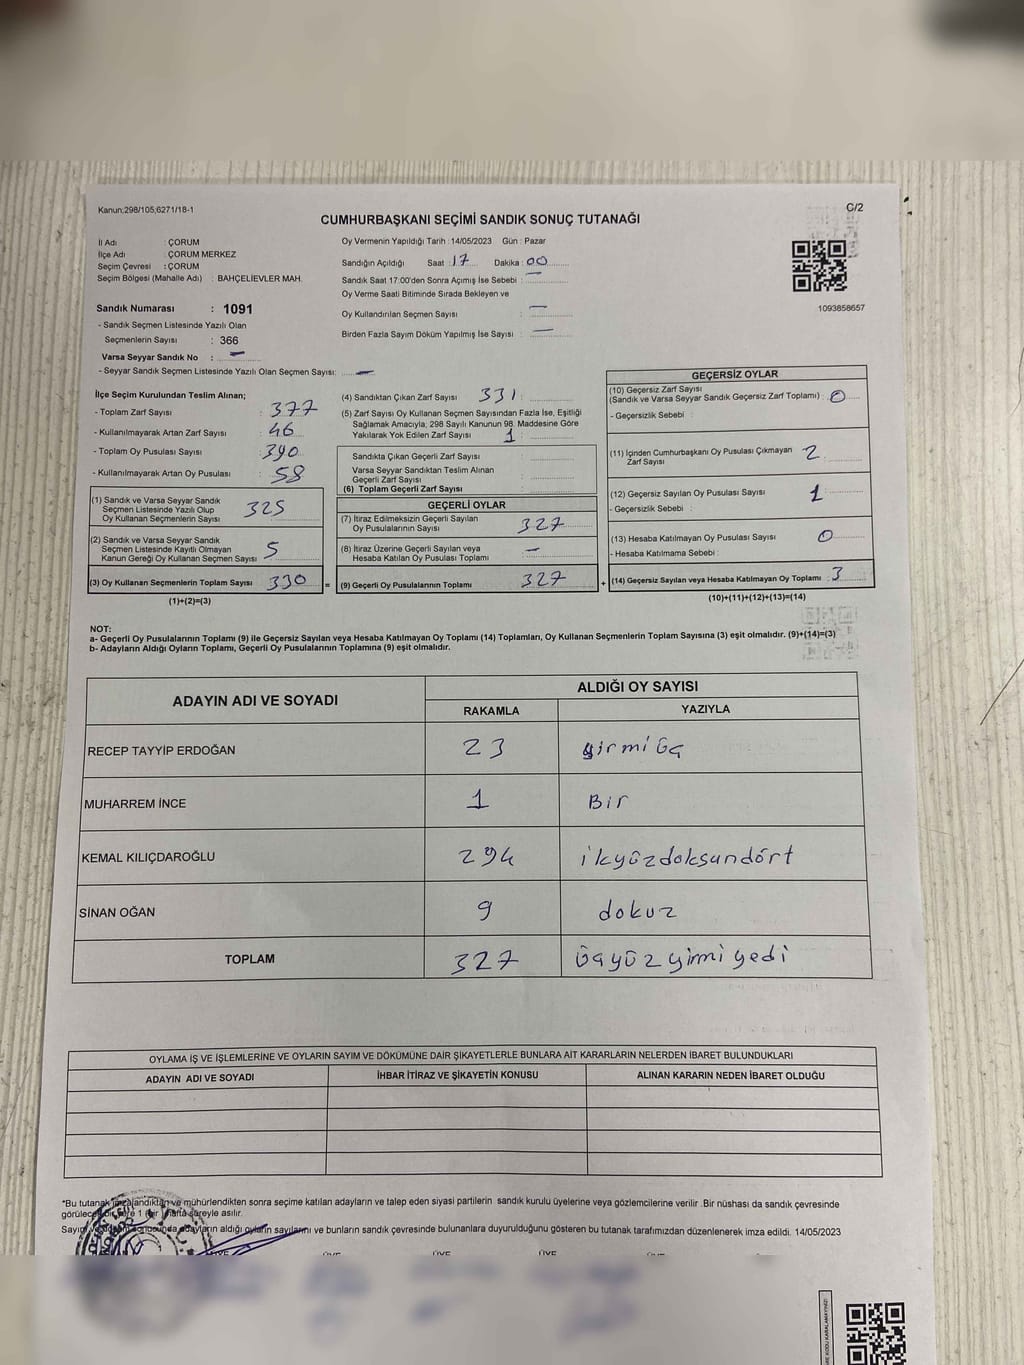 Kanun;298/105,6271/18-1
C/2
CUMHURBAŞKANI SEÇİMİ SANDIK SONUÇ TUTANAĞI
İl Adı : ÇORUM
İlçe Adı : ÇORUM MERKEZ
Seçim Çevresi : ÇORUM
Seçim Bölgesi (Mahalle Adı) : BAHÇELİEVLER MAH.
Sandık Numarası : 1091
- Sandık Seçmen Listesinde Yazılı Olan
Seçmenlerin Sayısı : 366
Varsa Seyyar Sandık No : —
- Seyyar Sandık Seçmen Listesinde Yazılı Olan Seçmen Sayısı: —
Oy Vermenin Yapıldığı Tarih : 14/05/2023 Gün : Pazar
Sandığın Açıldığı Saat : 17 Dakika : 00
Sandık Saat 17.00'den Sonra Açımış İse Sebebi : —
Oy Verme Saati Bitiminde Sırada Bekleyen ve
Oy Kullandırılan Seçmen Sayısı : —
Birden Fazla Sayım Döküm Yapılmış İse Sayısı : —
1093858657
İlçe Seçim Kurulundan Teslim Alınan;
- Toplam Zarf Sayısı : 377
- Kullanılmayarak Artan Zarf Sayısı : 46
- Toplam Oy Pusulası Sayısı : 390
- Kullanılmayarak Artan Oy Pusulası : 58
(1) Sandık ve Varsa Seyyar Sandık
Seçmen Listesinde Yazılı Olup
Oy Kullanan Seçmenlerin Sayısı 325
(2) Sandık ve Varsa Seyyar Sandık
Seçmen Listesinde Kayıtlı Olmayan
Kanun Gereği Oy Kullanan Seçmen Sayısı 5
(3) Oy Kullanan Seçmenlerin Toplam Sayısı 330
(1)+(2)=(3)
(4) Sandıktan Çıkan Zarf Sayısı 331
(5) Zarf Sayısı Oy Kullanan Seçmen Sayısından Fazla İse, Eşitliği
Sağlamak Amacıyla, 298 Sayılı Kanunun 98. Maddesine Göre
Yakılarak Yok Edilen Zarf Sayısı 1
Sandıkta Çıkan Geçerli Zarf Sayısı :
Varsa Seyyar Sandıktan Teslim Alınan
Geçerli Zarf Sayısı :
(6) Toplam Geçerli Zarf Sayısı :
GEÇERLİ OYLAR
(7) İtiraz Edilmeksizin Geçerli Sayılan
Oy Pusulalarının Sayısı 327
(8) İtiraz Üzerine Geçerli Sayılan veya
Hesaba Katılan Oy Pusulası Toplamı —
= (9) Geçerli Oy Pusulalarının Toplamı 327
GEÇERSİZ OYLAR
(10) Geçersiz Zarf Sayısı
(Sandık ve Varsa Seyyar Sandık Geçersiz Zarf Toplamı) : 0
- Geçersizlik Sebebi :
(11) İçinden Cumhurbaşkanı Oy Pusulası Çıkmayan
Zarf Sayısı 2
(12) Geçersiz Sayılan Oy Pusulası Sayısı 1
- Geçersizlik Sebebi :
(13) Hesaba Katılmayan Oy Pusulası Sayısı 0
- Hesaba Katılmama Sebebi :
+ (14) Geçersiz Sayılan veya Hesaba Katılmayan Oy Toplamı : 3
(10)+(11)+(12)+(13)=(14)
NOT:
a- Geçerli Oy Pusulalarının Toplamı (9) ile Geçersiz Sayılan veya Hesaba Katılmayan Oy Toplamı (14) Toplamları, Oy Kullanan Seçmenlerin Toplam Sayısına (3) eşit olmalıdır. (9)+(14)=(3)
b- Adayların Aldığı Oyların Toplamı, Geçerli Oy Pusulalarının Toplamına (9) eşit olmalıdır.
ADAYIN ADI VE SOYADI ALDIĞI OY SAYISI
RAKAMLA YAZIYLA
RECEP TAYYİP ERDOĞAN 23 yirmi üç
MUHARREM İNCE 1 Bir
KEMAL KILIÇDAROĞLU 294 ikyüzdoksandört
SİNAN OĞAN 9 dokuz
TOPLAM 327 üçyüz yirmi yedi
OYLAMA İŞ VE İŞLEMLERİNE VE OYLARIN SAYIM VE DÖKÜMÜNE DAİR ŞİKAYETLERLE BUNLARA AİT KARARLARIN NELERDEN İBARET BULUNDUKLARI
ADAYIN ADI VE SOYADI İHBAR İTİRAZ VE ŞİKAYETİN KONUSU ALINAN KARARIN NEDEN İBARET OLDUĞU
*Bu tutanak imzalandıktan ve mühürlendikten sonra seçime katılan adayların ve talep eden siyasi partilerin sandık kurulu üyelerine veya gözlemcilerine verilir .Bir nüshası da sandık çevresinde
1 hafta süreyle asılır.
adayların aldığı oyların sayılarını ve bunların sandık çevresinde bulunanlara duyurulduğunu gösteren bu tutanak tarafımızdan düzenlenerek imza edildi. 14/05/2023